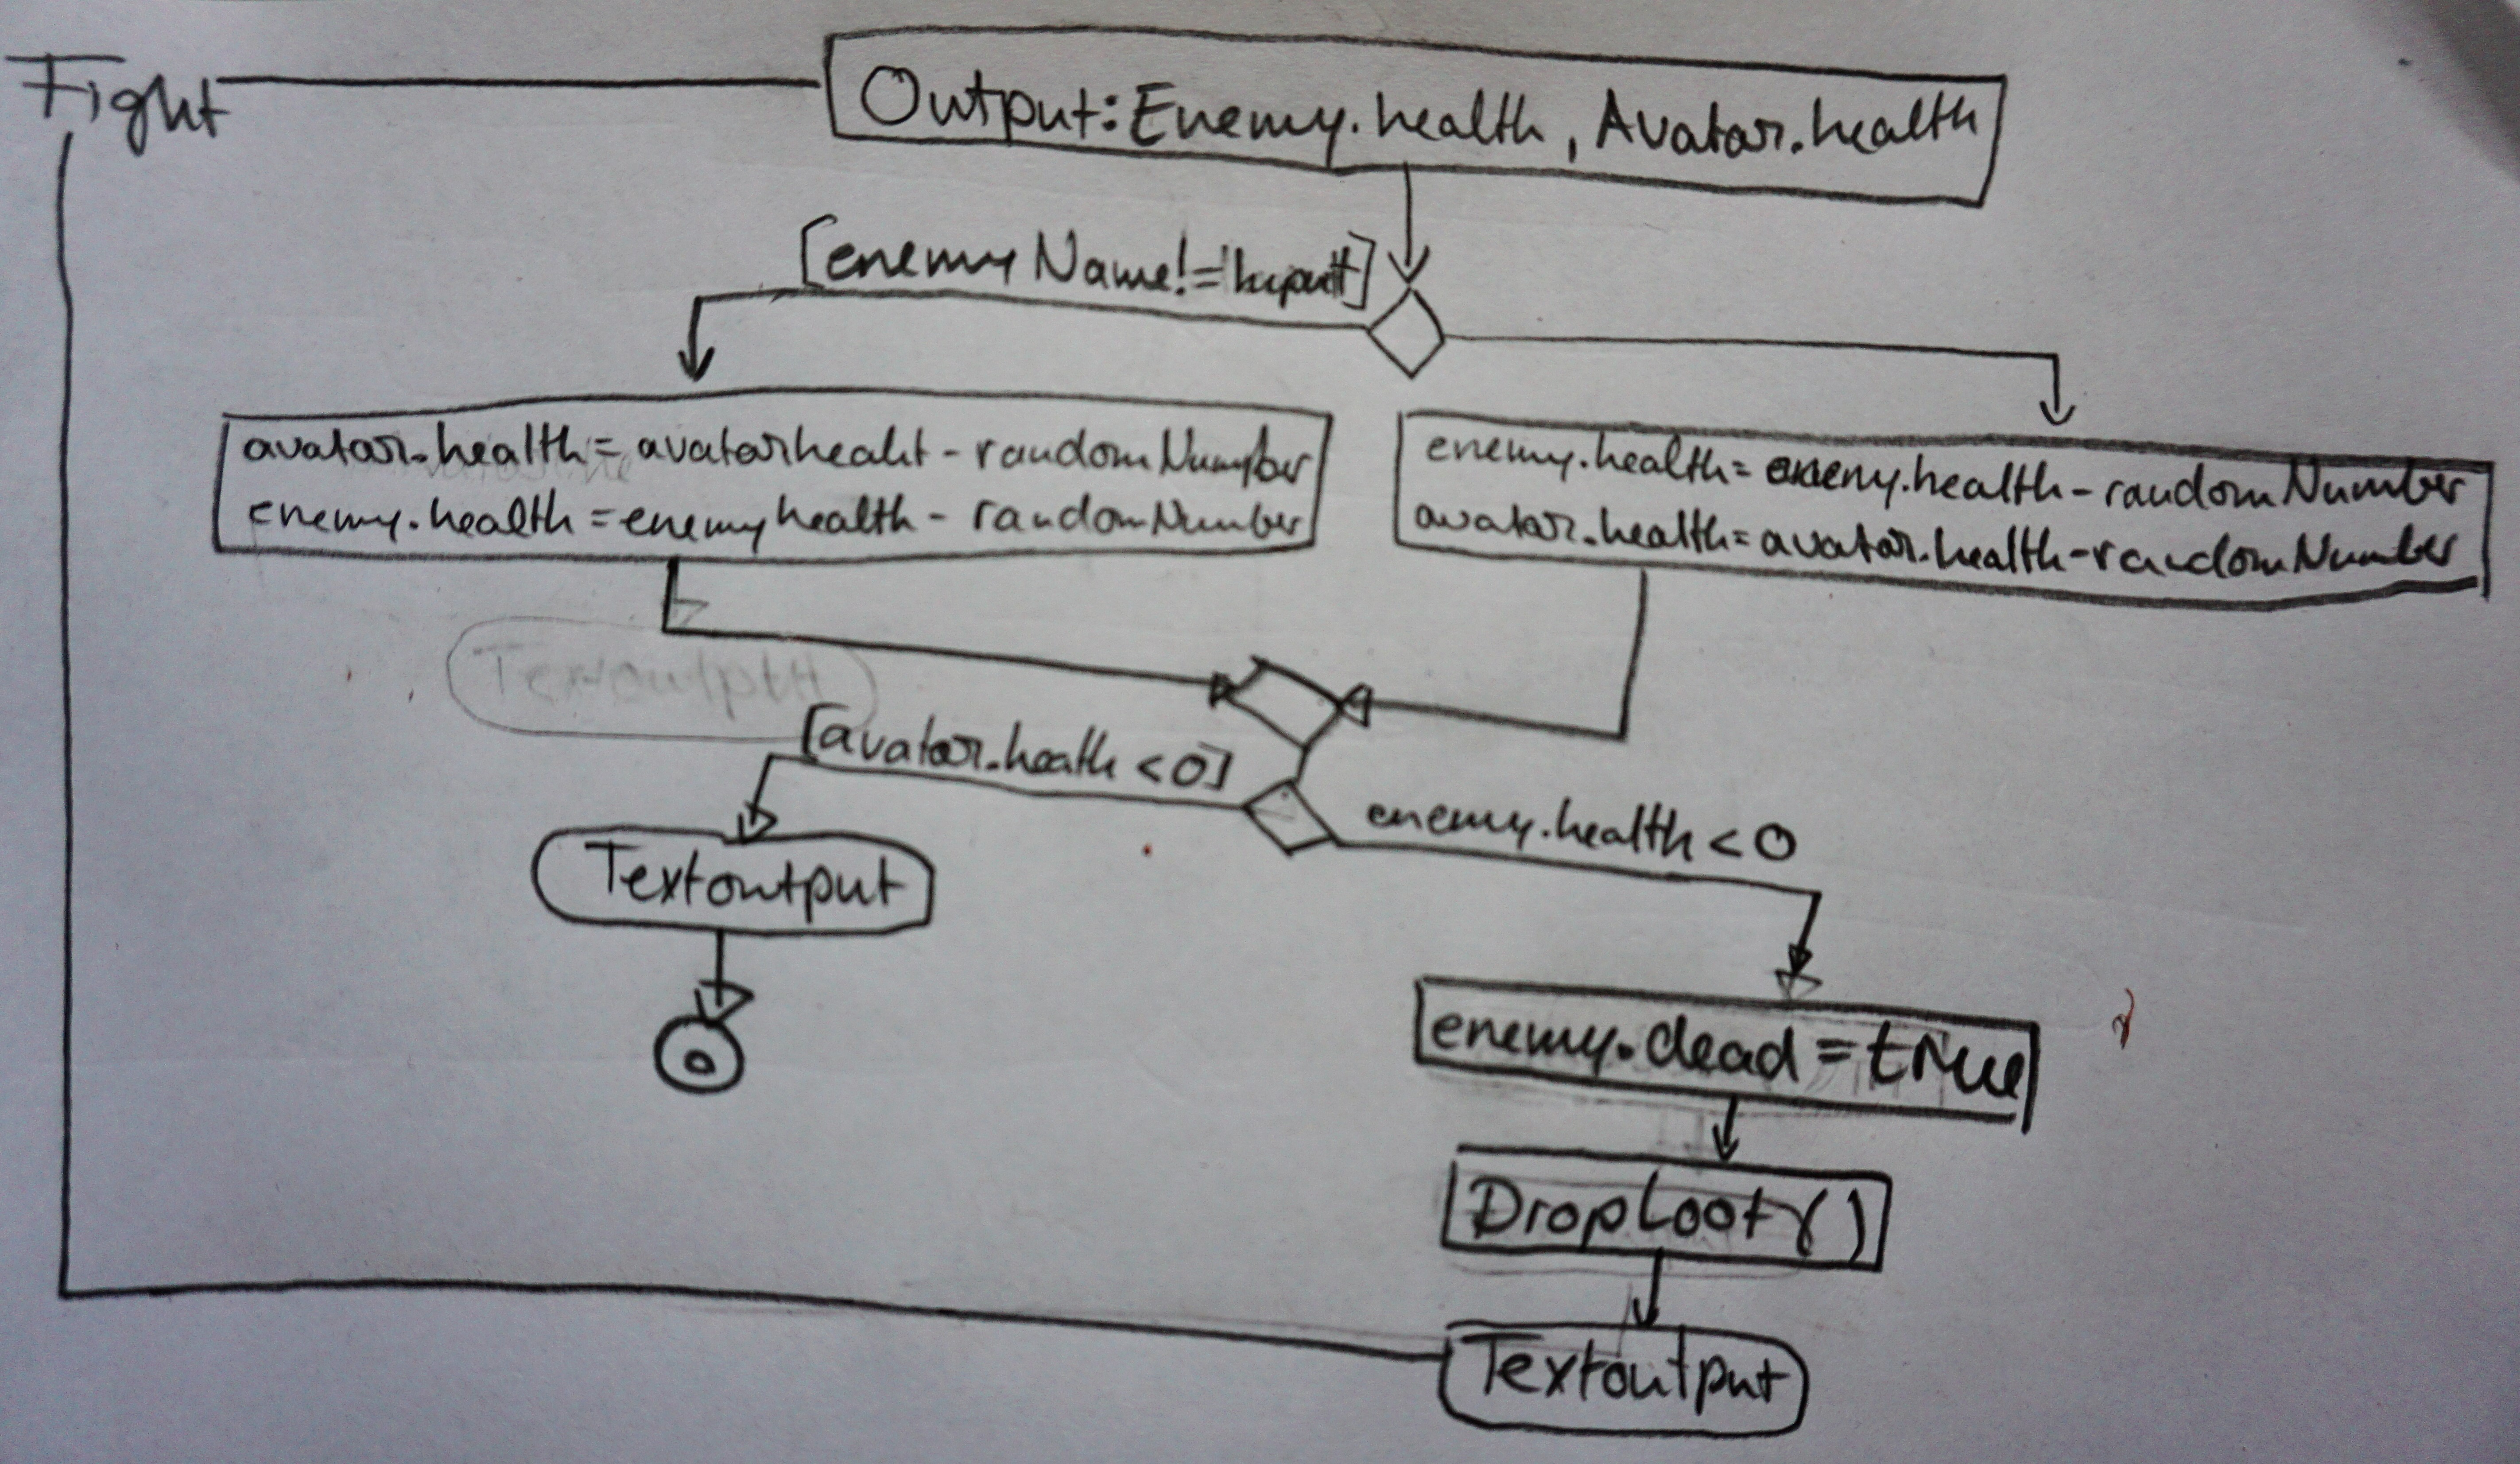 Fight
Output: Enemy.health, Avatar.health
[enemyName!=Input]
avatar.health = avatarhealt - randomNumber
enemy.health = enemyhealth - randomNumber
enemy.health = enemy.health - randomNumber
avatar.health = avatar.health - randomNumber
Textoutput
[avatar.heath < 0]
enemy.health < 0
Textoutput
enemy.dead = true
DropLoot()
Textoutput